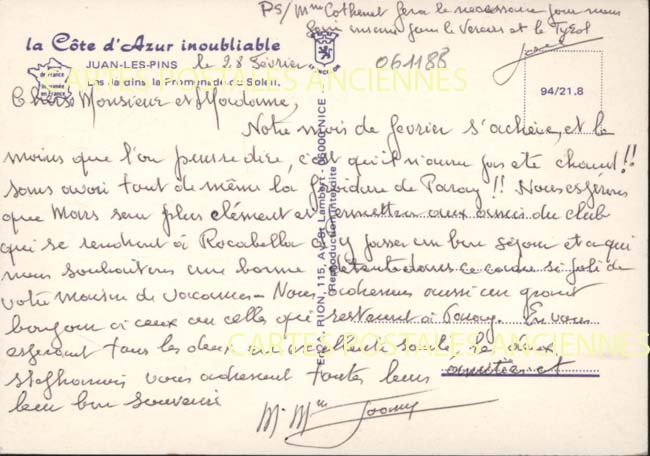 PS/ Mme Cothenet fera le nécessaire pour vous
faire inscrire pour le Vercors et le Tyrol
la Côte d'Azur inoubliable
JUAN-LES-PINS
le 28 février
061188
Les jardins, la Promenade du Soleil.
94/21.8
CARTES POSTALES ANCIENNES
Chers Monsieur et Madame,
Notre mois de février s'achève, et le
moins que l'on puisse dire, c'est qu'il n'aura pas été chaud!!
sans avoir tout de même la froidure de Paray!! Nous espérons
que Mars sera plus clément et permettra aux amis du club
qui se rendront à Rocabella d'y passer un bon séjour et à qui
nous souhaitons une bonne détente dans ce cadre si joli de
votre maison de vacances - Nous adressons aussi un grand
bonjour à ceux ou celles qui restent à Paray. En vous
espérant tous les deux en excellente santé, les
vous adressent toutes leurs amitiés et
leur bon souvenir
M. Mme
EDIT. RIJON, 115, Av. St Lambert - 06000 NICE
Reproduction interdite
CARTES POSTALES ANCIENNES